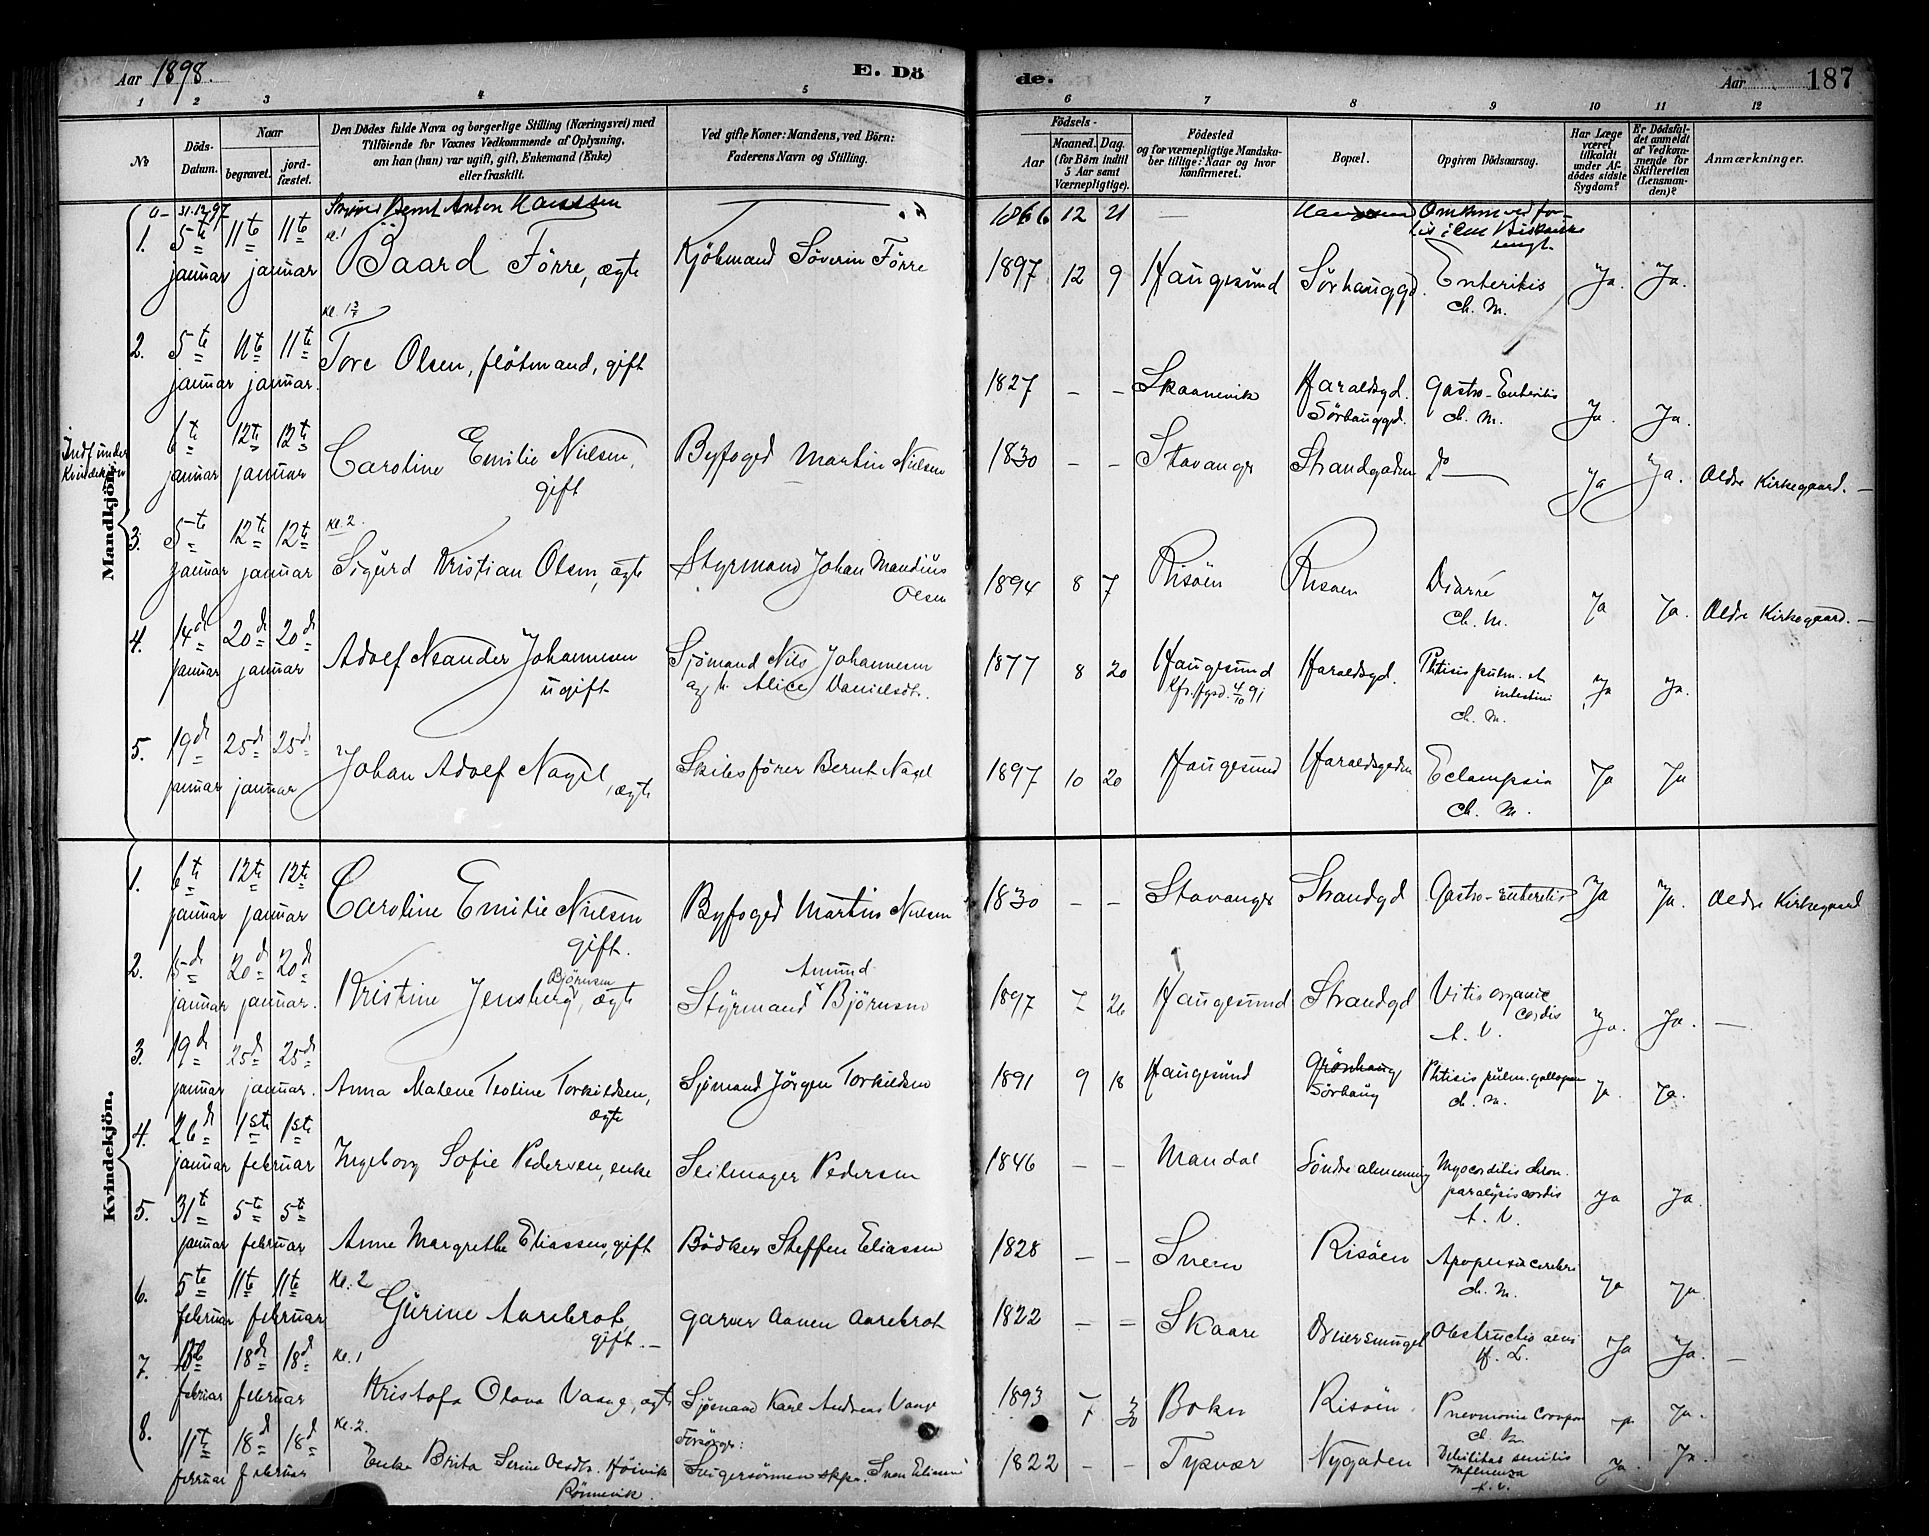 Aar 1898.
E. Dö
de.
Aar
187
1 2 3 4 5 6 7 8 9 10 11 12
No
Döds-Datum.
Naar
begravet.
jord-fæstet.
Den Dödes fulde Navn og borgerlige Stilling (Næringsvei) med
Tilföiende for Voxnes Vedkommende af Oplysning,
om han (hun) var ugift, gift, Enkemand (Enke)
eller fraskilt.
Ved gifte Koner: Mandens, ved Börn:
Faderens Navn og Stilling.
Födsels-
Aar
Maaned. Dag.
(for Börn indtil
5 Aar samt
Værnepligtige).
Födested
og for værnepligtige Mandska-
ber tillige: Naar og hvor
konfirmeret.
Bopæl.
Opgiven Dödsaarsag.
Har Læge
været
tilkaldt
under Af-
dödes sidste
Sygdom?
Er Dödsfal-
det anmeldt
af Vedkom-
mende for
Skifteretten
(Lensman-
den)?
Anmærkninger.
Mandkjön.
a- 31.12.97 Bernt Anton 1866 12 21 — Omkom ved for-
1. 5te januar 11te 11te januar Kl. 1 Baard Förre, ægte Kjöbmand Söverin Förre 1897 12 9 Haugesund Sörhauggd. Enteritis ch. M. Ja. Ja.
2. 5te januar 11te 11te januar. Tore Olsen, flötmand, gift 1827 – – Skaanevik Haraldsgd. Sörhauggd. Gastro-Enteritis ch. M. Ja. Ja.
Indf. under Kvindekjön
6te januar 12te 12te januar Caroline Emilie Nielsen, gift Byfoged Martin Nielsen 1830 – – Stavanger Strandgaden Do Ja Ja. Ældre Kirkegaard. –
3. 5te januar 12te 12te januar Kl. 2. Sigurd Kristian Olsen, ægte Styrmand Johan Mandius Olsen 1894 8 7 Risöen Risöen Diarré ch. M. Ja Ja. Ældre Kirkegaard. –
4. 14de januar 20de 20de januar Adolf Neander Johannesen ugift Sjömand Nils Johannesen og h. Alice Danielsdt. 1877 8 20 Haugesund 4/10 91 Haraldsgd. Phtisis pulm. et intestini ch. M. Ja Ja.
5. 19de januar 25de 25de januar Johan Adolf Nagel, ægte Skibsförer Bernt Nagel 1897 10 20 Haugesund Haraldsgaden Eclampsia ch. M. Ja Ja
Kvindekjön.
1. 6te januar 12te 12te januar Caroline Emilie Nielsen gift. Byfoged Martin Nielsen 1830 – – Stavanger Strandgd Gastro-Enteritis Ja Ja. Ældre Kirkegaard
2. 15de januar 20de 20de januar. Kristine Jensberg Björnsen, ægte Styrmand Amund Björnsen 1897 7 26 Haugesund Strandgd Vitis organic cordis A. V. Ja. Ja. —
3. 19de januar 25de 25de januar. Anna Malene Teoline Torkildsen, ægte Sjömand Jörgen Torkildsen 1891 9 18 Haugesund Grönhaug Sörhaug Phtisis pulm. ch. M. Ja. Ja.
4. 26de januar 1ste 1ste februar Ingeborg Sofie Pedersen, enke Seilmager Pedersen 1846 – – Mandal Söndre almenning Myocarditis chron. paralysis cordis A. V. Ja Ja.
5. 31te januar 5te 5te februar Anne Margrethe Eliassen, gift Bödker Steffen Eliassen 1828 – – Sveen Risöen Apoplexia cerebri ch. M. Ja Ja.
6. 5te februar 11te 11te februar Kl. 2 Gurine Aarebrot, gift. – Garver Aanen Aarebrot 1822 – – Skaare Obstructio alvi H. L. Ja Ja. —
7. februar 18de 18de februar Kl. 1 Kristofa Olava Vaage, ægte Sjömand Karl Andreas Vaage 1893 7 30 Bokn Risöen Pneumonia ch. M. Ja Ja.
8. 11te februar 18de 18de februar Kl. 2. Enke Brita Serine Höivik Rönnevik. Forsörger: Svigersönnen skpr. Sven Eliassen 1822 – – Tysvær Nygaden Debilitas senilis Influenza A. V. Ja. Ja.